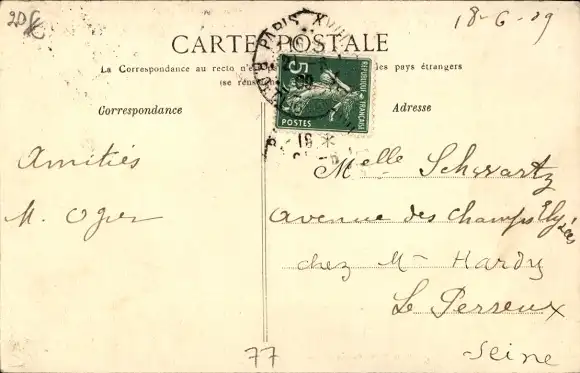 18-6-09
CARTE POSTALE
La Correspondance au recto n'es les pays étrangers
(se rense
Correspondance
Adresse
PARIS XVIII
RÉPUBLIQUE FRANÇAISE
5
POSTES
Amitiés
M. Ogier
Melle Schwartz
Avenue des Champs Elysées
chez Mr Hardy
Le Perreux
Seine
77